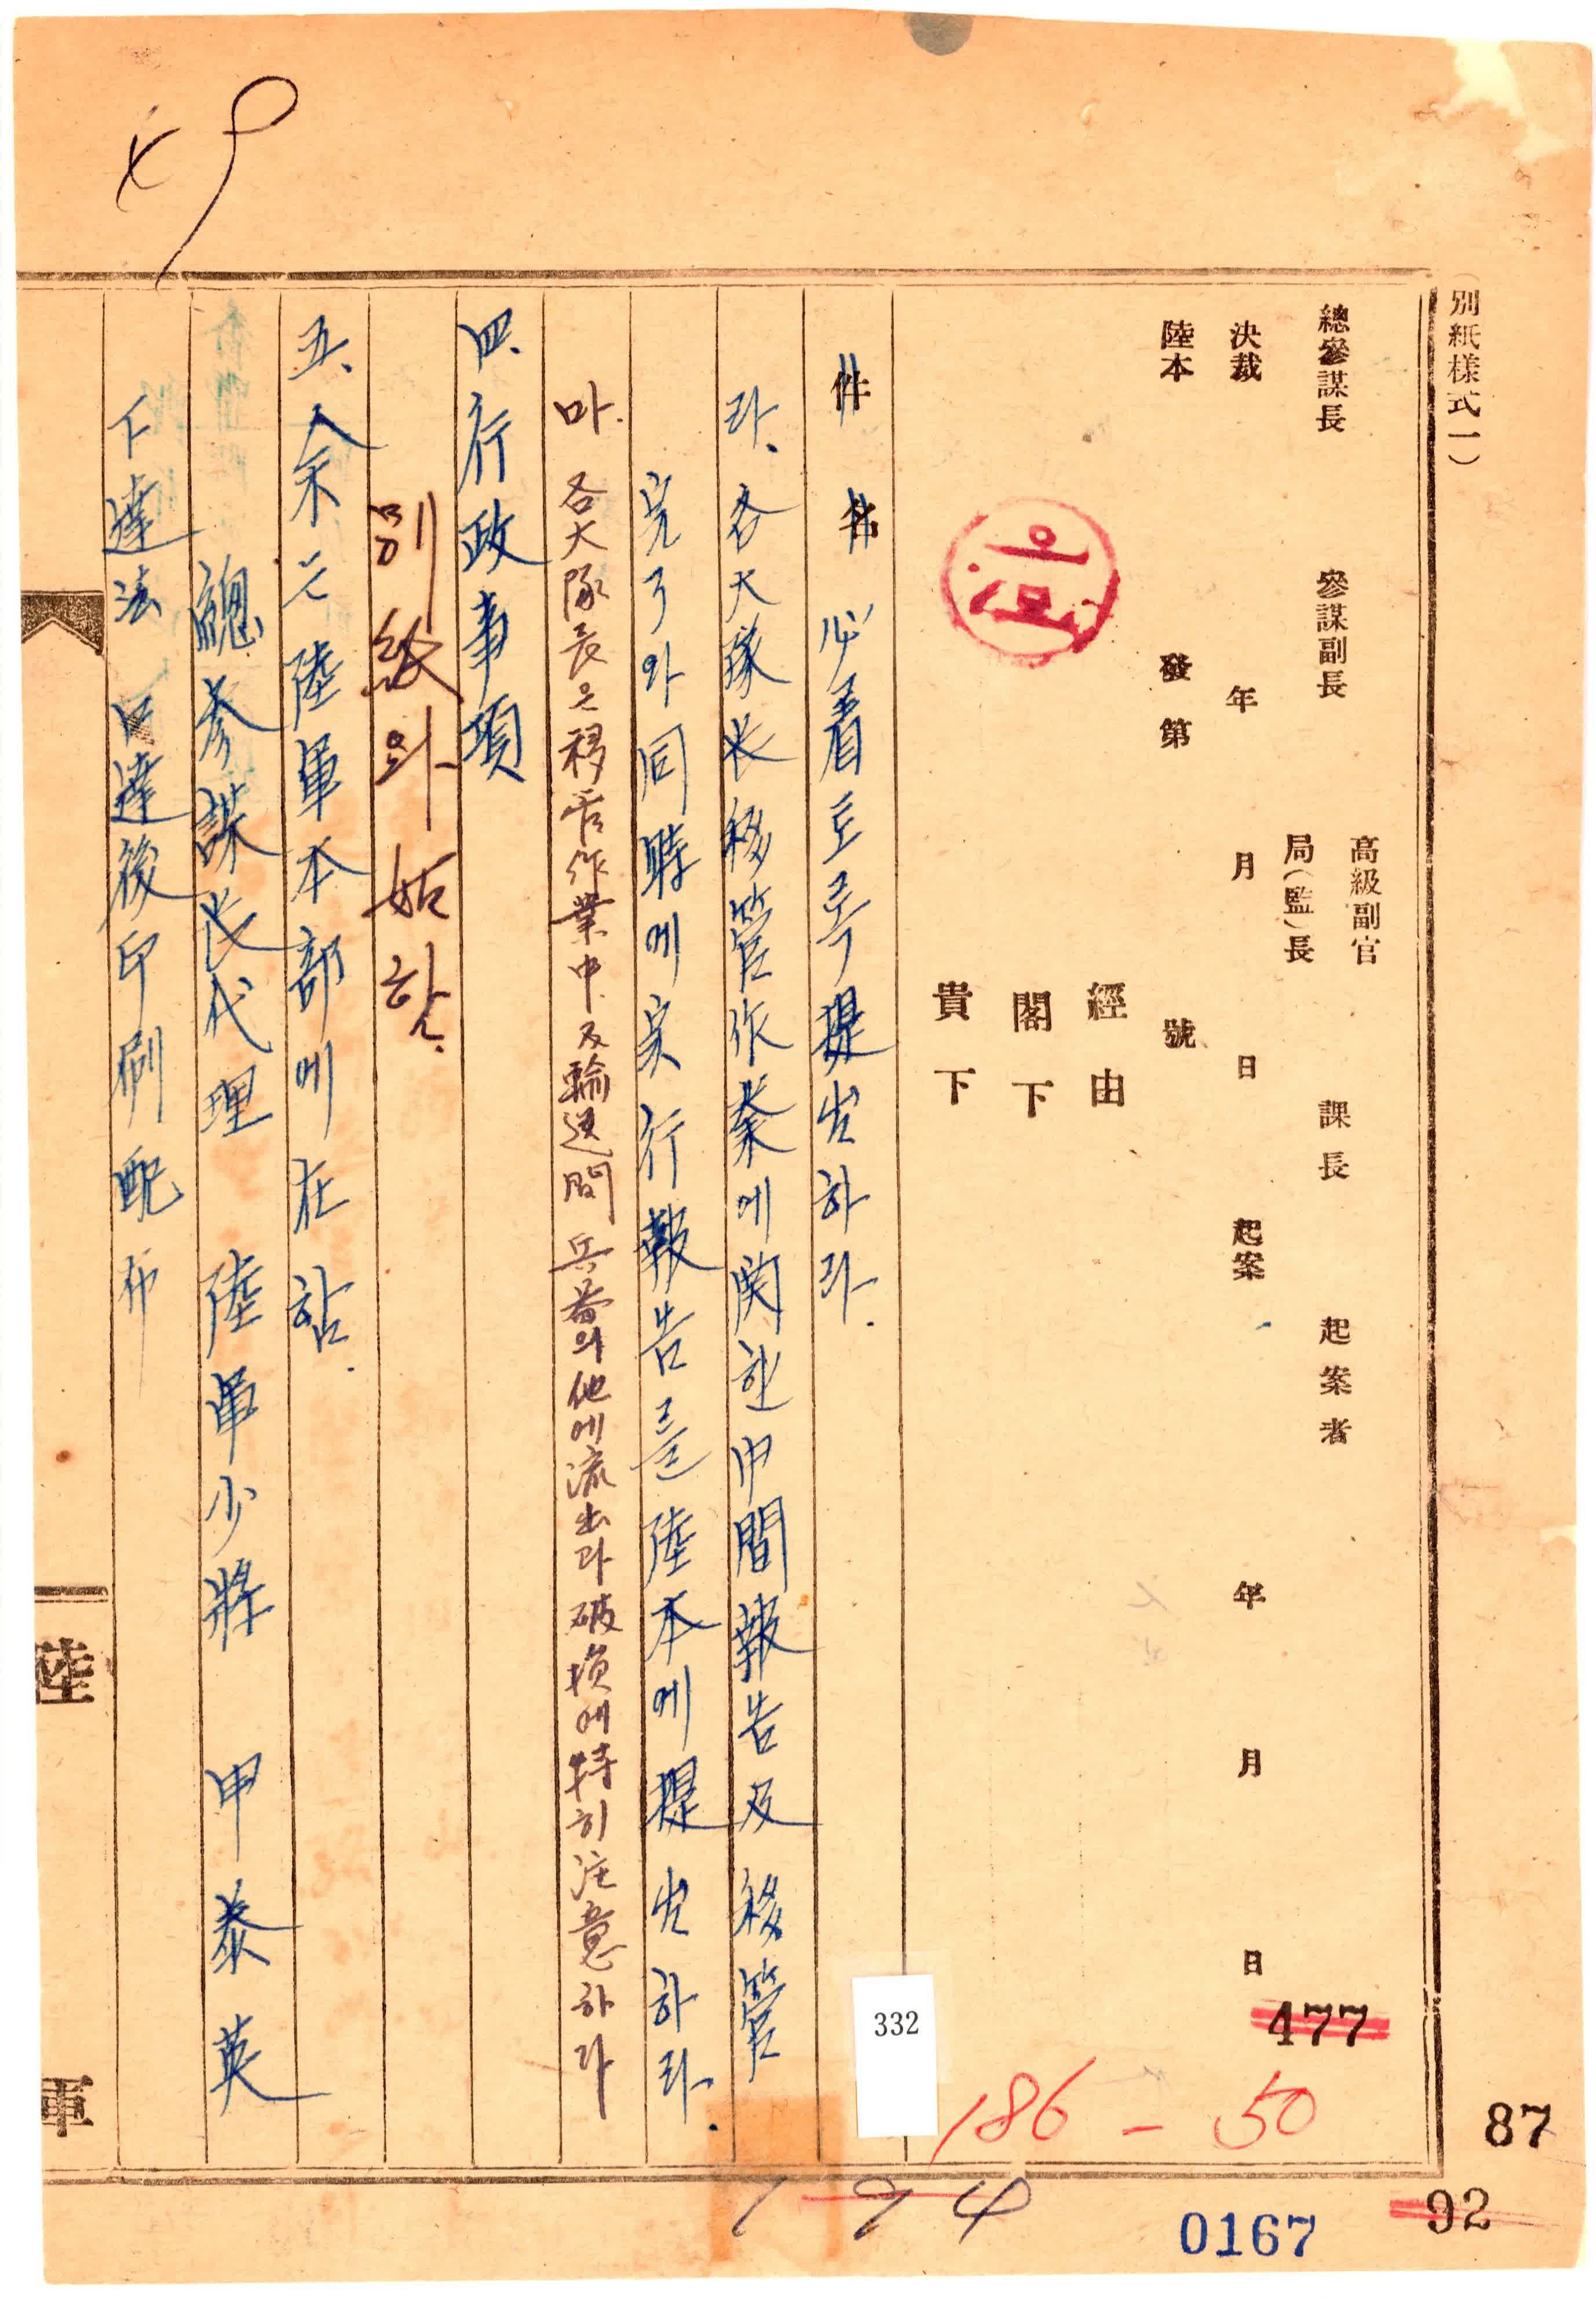 (別紙樣式一)
總參謀長 參謀副長 高級副官 局(監)長 課長 起案者
決裁 年 月 日 起案 年 月 日
陸本 發第 號
經由
閣下
貴下
件名 必着토록 提出하라.
라. 各大隊長 移管作業에 関한 中間報告 及 移管
完了와 同時에 実行報告를 陸本에 提出하라.
마. 各大隊長은 移管作業中 及 輸送間 兵器의 他에 流出과 破損에 特히 注意하라
四. 行政事項
別紙와 如함.
五. 余는 陸軍本部에 在함.
總參謀長代理 陸軍少將 申泰英
下達法 口達後 印刷配布
陸
軍
332
477
186-50
87
194
0167
92